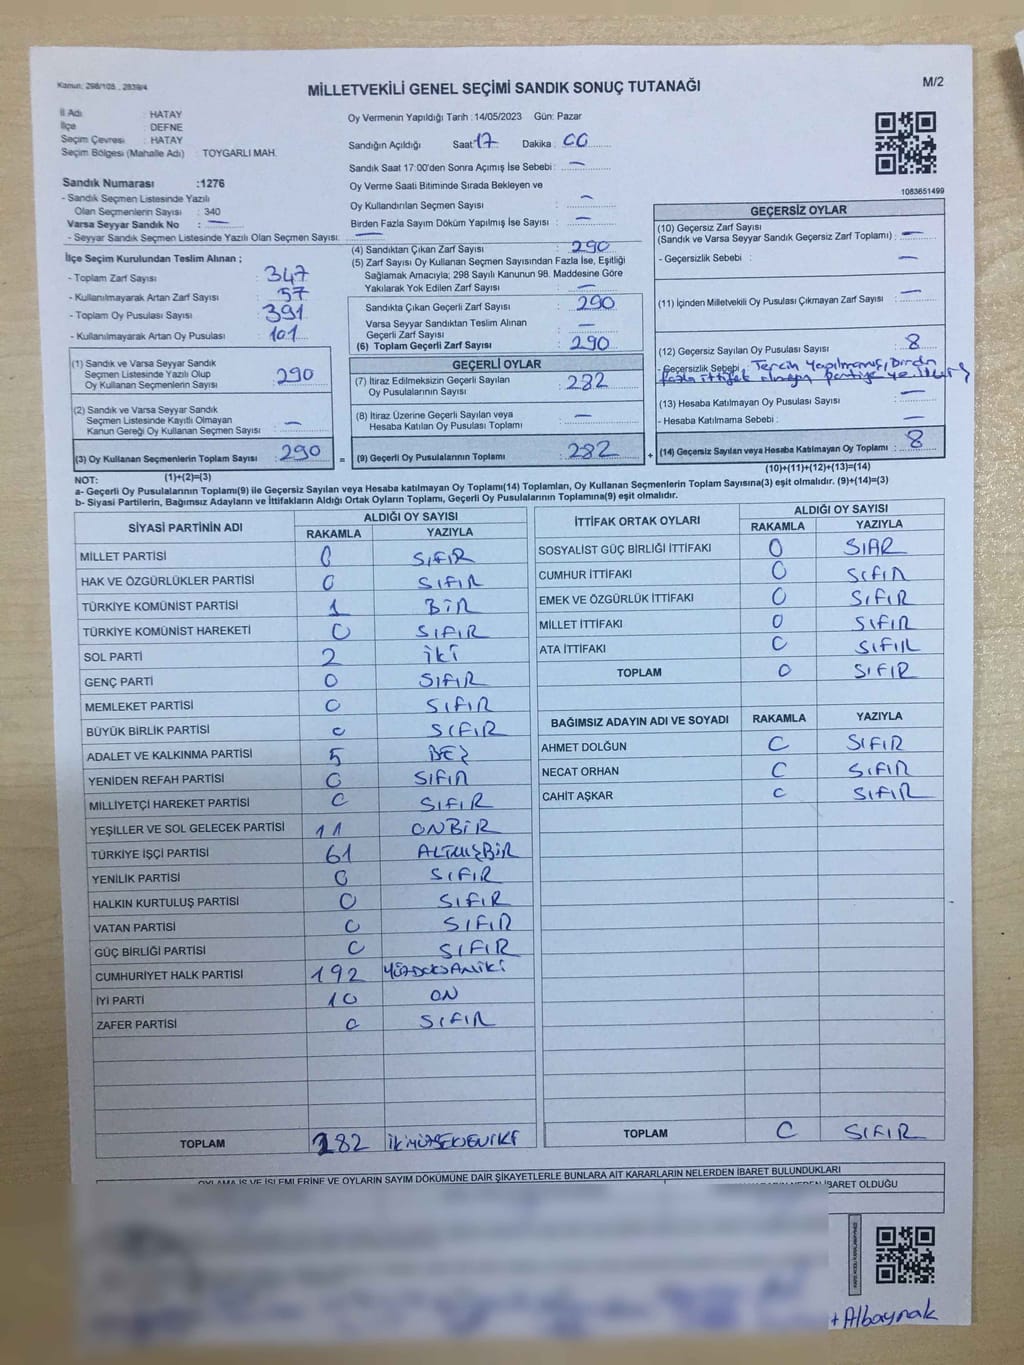 Kanun: 298/105 , 2839/4
MİLLETVEKİLİ GENEL SEÇİMİ SANDIK SONUÇ TUTANAĞI
M/2
İl Adı : HATAY
İlçe : DEFNE
Seçim Çevresi : HATAY
Seçim Bölgesi (Mahalle Adı) : TOYGARLI MAH.
Sandık Numarası :1276
- Sandık Seçmen Listesinde Yazılı
Olan Seçmenlerin Sayısı : 340
Varsa Seyyar Sandık No : —
- Seyyar Sandık Seçmen Listesinde Yazılı Olan Seçmen Sayısı: —
İlçe Seçim Kurulundan Teslim Alınan ;
- Toplam Zarf Sayısı : 347
- Kullanılmayarak Artan Zarf Sayısı : 57
- Toplam Oy Pusulası Sayısı : 391
- Kullanılmayarak Artan Oy Pusulası : 101
(1) Sandık ve Varsa Seyyar Sandık
Seçmen Listesinde Yazılı Olup
Oy Kullanan Seçmenlerin Sayısı : 290
(2) Sandık ve Varsa Seyyar Sandık
Seçmen Listesinde Kayıtlı Olmayan
Kanun Gereği Oy Kullanan Seçmen Sayısı : —
(3) Oy Kullanan Seçmenlerin Toplam Sayısı : 290
(1)+(2)=(3)
Oy Vermenin Yapıldığı Tarih : 14/05/2023 Gün: Pazar
Sandığın Açıldığı Saat: 17 Dakika : 00
Sandık Saat 17:00'den Sonra Açımış İse Sebebi : —
Oy Verme Saati Bitiminde Sırada Bekleyen ve
Oy Kullandırılan Seçmen Sayısı : —
Birden Fazla Sayım Döküm Yapılmış İse Sayısı : —
(4) Sandıktan Çıkan Zarf Sayısı : 290
(5) Zarf Sayısı Oy Kullanan Seçmen Sayısından Fazla İse, Eşitliği
Sağlamak Amacıyla; 298 Sayılı Kanunun 98. Maddesine Göre
Yakılarak Yok Edilen Zarf Sayısı : —
Sandıkta Çıkan Geçerli Zarf Sayısı : 290
Varsa Seyyar Sandıktan Teslim Alınan
Geçerli Zarf Sayısı : —
(6) Toplam Geçerli Zarf Sayısı : 290
GEÇERLİ OYLAR
(7) İtiraz Edilmeksizin Geçerli Sayılan
Oy Pusulalarının Sayısı : 282
(8) İtiraz Üzerine Geçerli Sayılan veya
Hesaba Katılan Oy Pusulası Toplamı : —
= (9) Geçerli Oy Pusulalarının Toplamı : 282 +
1083651499
GEÇERSİZ OYLAR
(10) Geçersiz Zarf Sayısı
(Sandık ve Varsa Seyyar Sandık Geçersiz Zarf Toplamı) : —
- Geçersizlik Sebebi : —
(11) İçinden Milletvekili Oy Pusulası Çıkmayan Zarf Sayısı : —
(12) Geçersiz Sayılan Oy Pusulası Sayısı : 8
- Geçersizlik Sebebi : Tercih Yapılmamış, Birden
fazla ittifak olmayan partiye
(13) Hesaba Katılmayan Oy Pusulası Sayısı : —
- Hesaba Katılmama Sebebi : —
(14) Geçersiz Sayılan veya Hesaba Katılmayan Oy Toplamı : 8
(10)+(11)+(12)+(13)=(14)
NOT:
a- Geçerli Oy Pusulalarının Toplamı(9) ile Geçersiz Sayılan veya Hesaba katılmayan Oy Toplamı(14) Toplamları, Oy Kullanan Seçmenlerin Toplam Sayısına(3) eşit olmalıdır. (9)+(14)=(3)
b- Siyasi Partilerin, Bağımsız Adayların ve İttifakların Aldığı Ortak Oyların Toplamı, Geçerli Oy Pusulalarının Toplamına(9) eşit olmalıdır.
SİYASİ PARTİNİN ADI ALDIĞI OY SAYISI
RAKAMLA YAZIYLA
MİLLET PARTİSİ 0 SIFIR
HAK VE ÖZGÜRLÜKLER PARTİSİ 0 SIFIR
TÜRKİYE KOMÜNİST PARTİSİ 1 BİR
TÜRKİYE KOMÜNİST HAREKETİ 0 SIFIR
SOL PARTİ 2 İKİ
GENÇ PARTİ 0 SIFIR
MEMLEKET PARTİSİ 0 SIFIR
BÜYÜK BİRLİK PARTİSİ 0 SIFIR
ADALET VE KALKINMA PARTİSİ 5 BEŞ
YENİDEN REFAH PARTİSİ 0 SIFIR
MİLLİYETÇİ HAREKET PARTİSİ 0 SIFIR
YEŞİLLER VE SOL GELECEK PARTİSİ 11 ONBİR
TÜRKİYE İŞÇİ PARTİSİ 61 ALTMIŞBİR
YENİLİK PARTİSİ 0 SIFIR
HALKIN KURTULUŞ PARTİSİ 0 SIFIR
VATAN PARTİSİ 0 SIFIR
GÜÇ BİRLİĞİ PARTİSİ 0 SIFIR
CUMHURİYET HALK PARTİSİ 192 YÜZDOKSANİKİ
İYİ PARTİ 10 ON
ZAFER PARTİSİ 0 SIFIR
TOPLAM 282 İKİYÜZSEKSENİKİ
İTTİFAK ORTAK OYLARI ALDIĞI OY SAYISI
RAKAMLA YAZIYLA
SOSYALİST GÜÇ BİRLİĞİ İTTİFAKI 0 SIFIR
CUMHUR İTTİFAKI 0 SIFIR
EMEK VE ÖZGÜRLÜK İTTİFAKI 0 SIFIR
MİLLET İTTİFAKI 0 SIFIR
ATA İTTİFAKI 0 SIFIR
TOPLAM 0 SIFIR
BAĞIMSIZ ADAYIN ADI VE SOYADI RAKAMLA YAZIYLA
AHMET DOLĞUN 0 SIFIR
NECAT ORHAN 0 SIFIR
CAHİT AŞKAR 0 SIFIR
TOPLAM 0 SIFIR
OYLAMA İŞ VE İŞLEMLERİNE VE OYLARIN SAYIM DÖKÜMÜNE DAİR ŞİKAYETLERLE BUNLARA AİT KARARLARIN NELERDEN İBARET BULUNDUKLARI
NEDEN İBARET OLDUĞU
+Albaynak